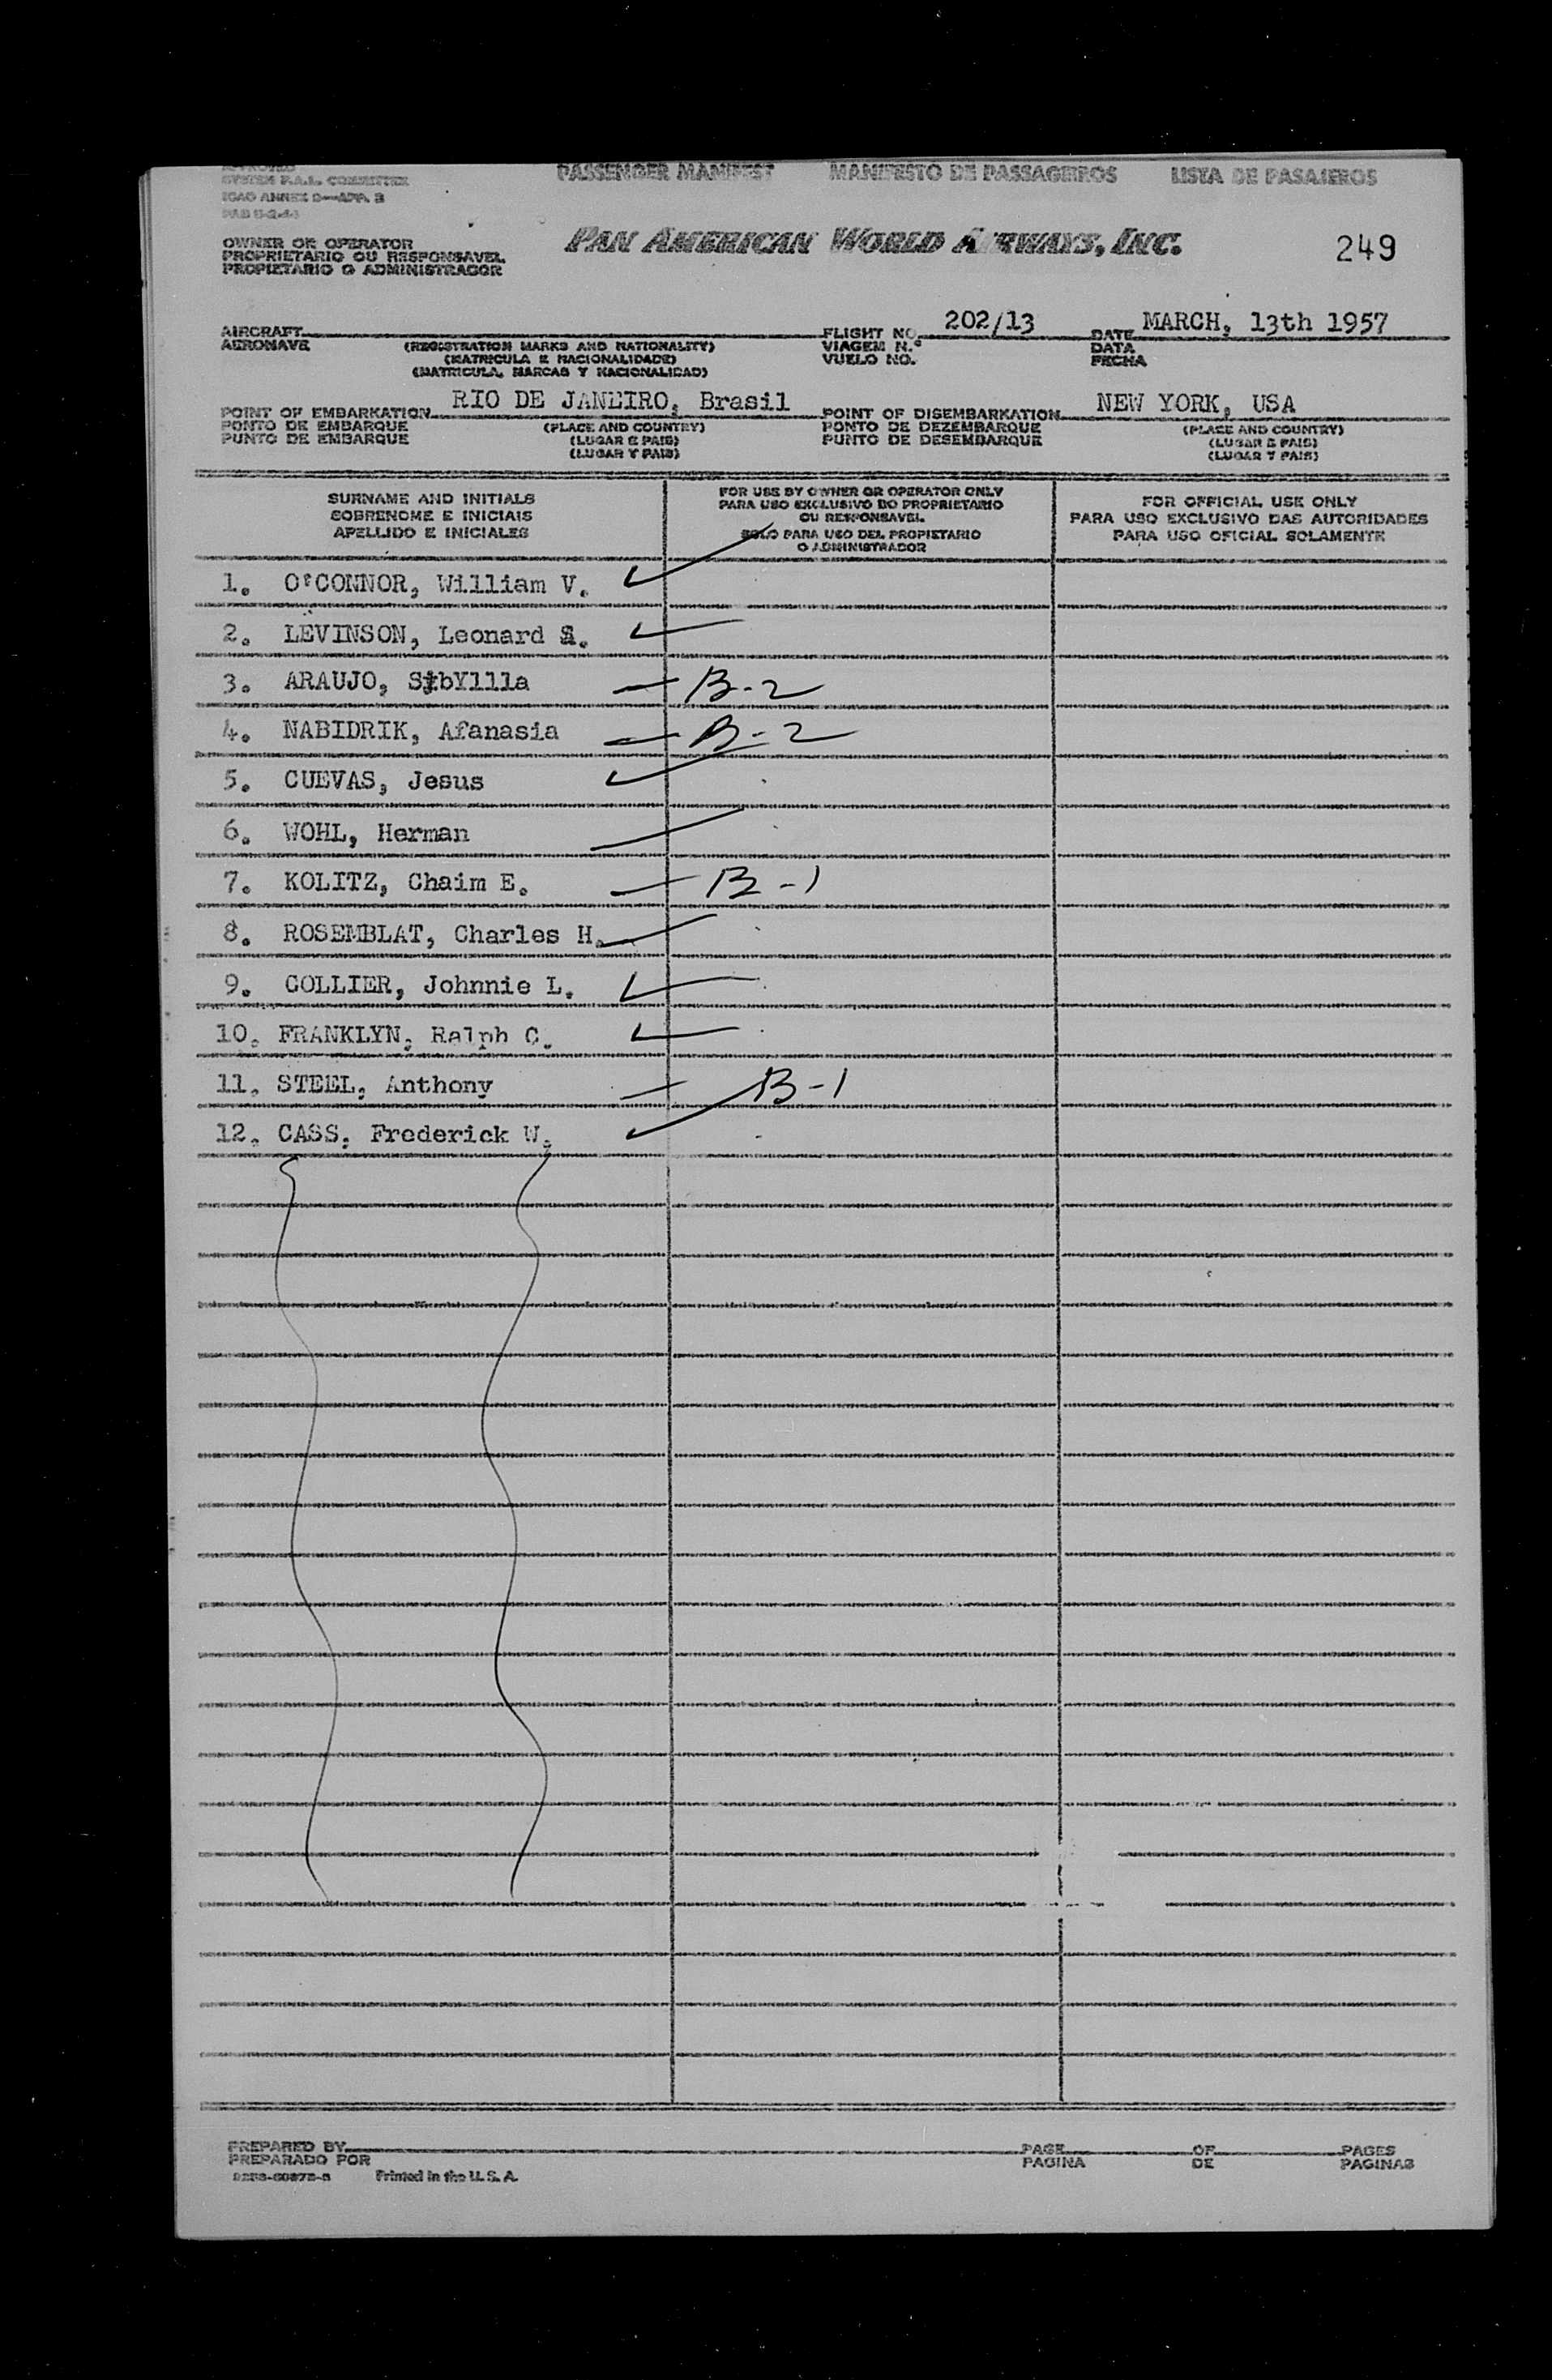 PASSENGER MANIFEST MANIFESTO DE PASSAGEIROS LISTA DE PASAJEROS
SYSTEM F.A.L. COMMITTEE
ICAO ANNEX 9—APP. 3
OWNER OR OPERATOR
PROPRIETARIO OU RESPONSAVEL
PROPIETARIO O ADMINISTRADOR
PAN AMERICAN WORLD AIRWAYS, INC.
249
AIRCRAFT
AERONAVE
(REGISTRATION MARKS AND NATIONALITY)
(MATRICULA E NACIONALIDADE)
(MATRICULA, MARCAS Y NACIONALIDAD)
FLIGHT NO. 202/13
VIAGEM N.º
VUELO NO.
DATE MARCH, 13th 1957
DATA
FECHA
POINT OF EMBARKATION RIO DE JANEIRO, Brasil
PONTO DE EMBARQUE
PUNTO DE EMBARQUE
(PLACE AND COUNTRY)
(LUGAR E PAIS)
(LUGAR Y PAIS)
POINT OF DISEMBARKATION NEW YORK, USA
PONTO DE DEZEMBARQUE
PUNTO DE DESEMBARQUE
(PLACE AND COUNTRY)
(LUGAR E PAIS)
(LUGAR Y PAIS)
SURNAME AND INITIALS
SOBRENOME E INICIAIS
APELLIDO E INICIALES
FOR USE BY OWNER OR OPERATOR ONLY
PARA USO EXCLUSIVO DO PROPRIETARIO
OU RESPONSAVEL
SOLO PARA USO DEL PROPIETARIO
O ADMINISTRADOR
FOR OFFICIAL USE ONLY
PARA USO EXCLUSIVO DAS AUTORIDADES
PARA USO OFICIAL SOLAMENTE
1. O'CONNOR, William V.
2. LEVINSON, Leonard
3. ARAUJO, SibYllla B-2
4. NABIDRIK, Afanasia B-2
5. CUEVAS, Jesus
6. WOHL, Herman
7. KOLITZ, Chaim E. B-1
8. ROSEMBLAT, Charles H.
9. COLLIER, Johnnie L.
10. FRANKLYN, Ralph C.
11. STEEL, Anthony B-1
12. CASS, Frederick W.
PREPARED BY
PREPARADO POR
PAGE
PAGINA
OF
DE
PAGES
PAGINAS
Printed in the U. S. A.